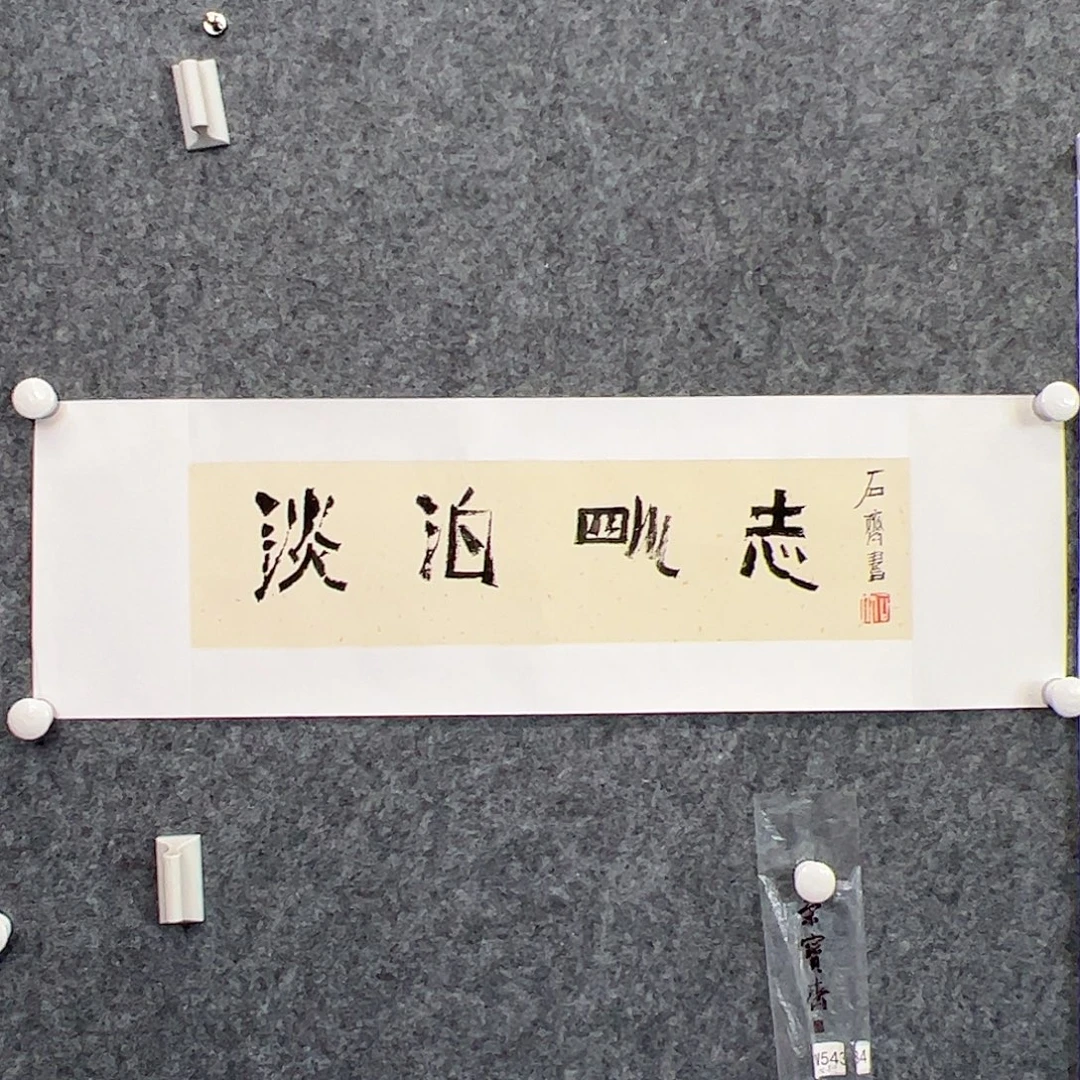 淡泊明志
石齊書
寶齋
W543 84